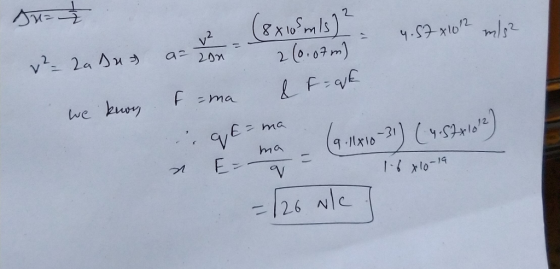 Δx = 1/2
v² = 2a Δx ⇒ a = v²/2Δx = (8×10⁵ m/s)²/2(0.07m) = 4.57×10¹² m/s²
we know F = ma & F = qE
∴ qE = ma
E = ma/q = (9.11×10⁻³¹) (4.57×10¹²)/1.6×10⁻¹⁹
= 26 N/C